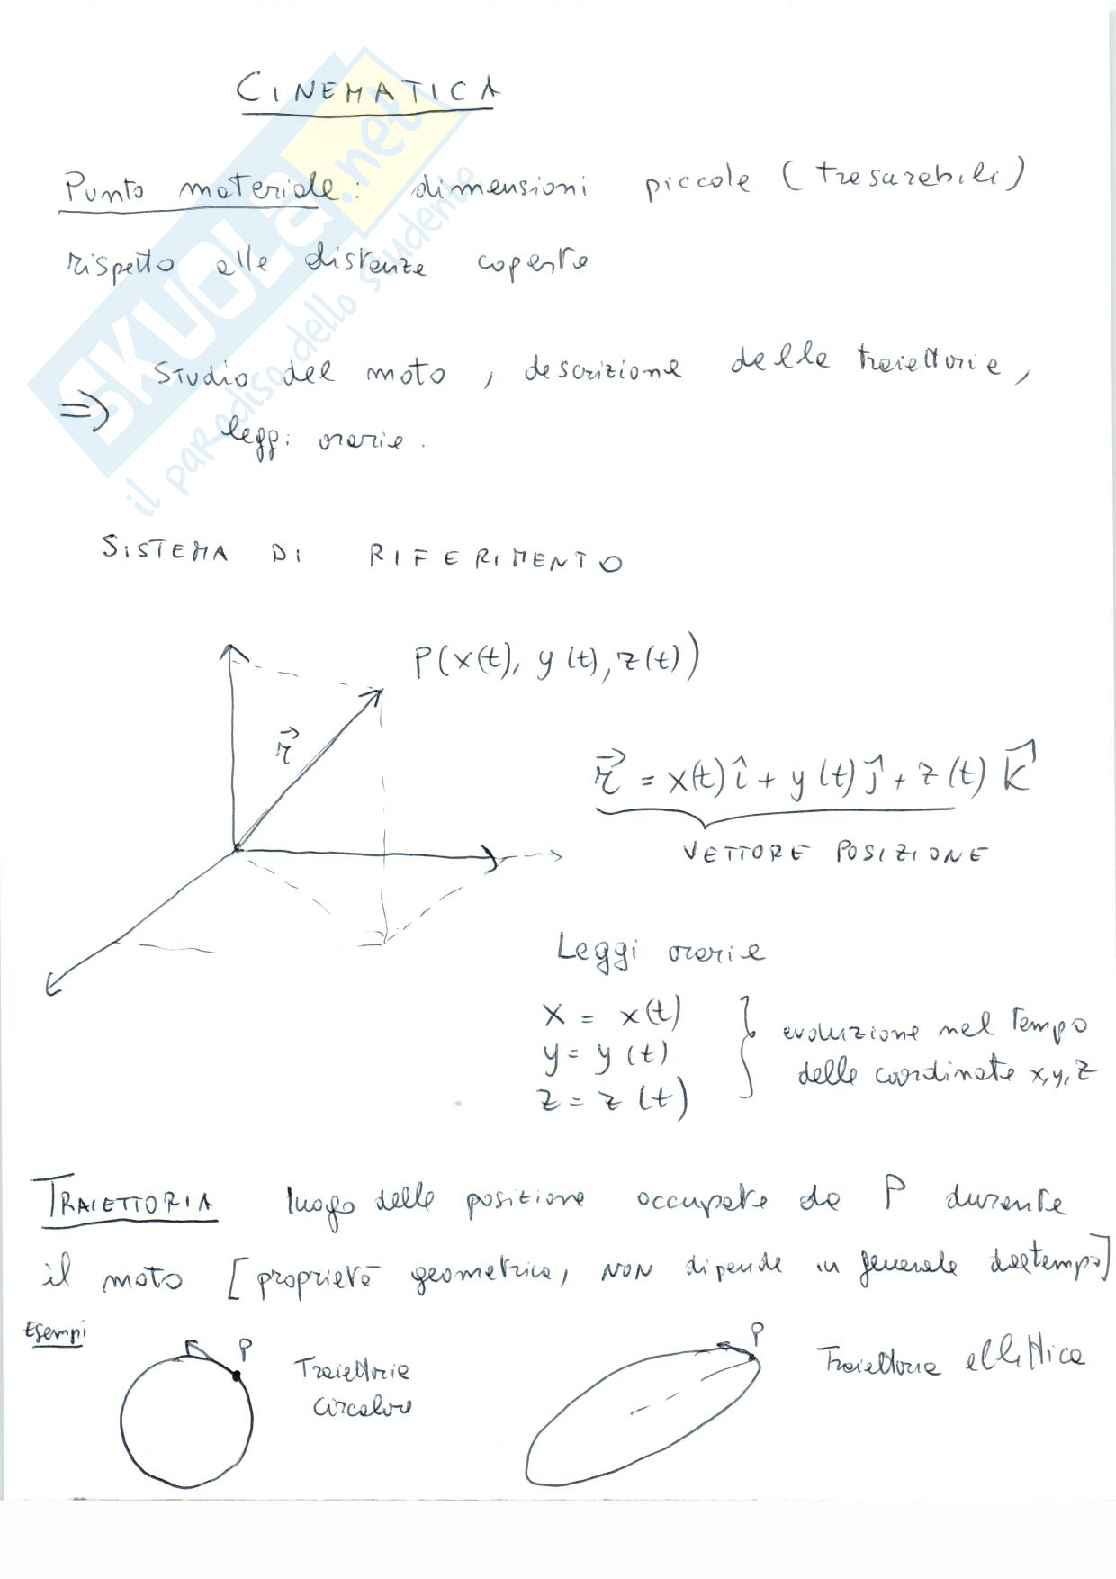 CINEMATICA
Punto materiale: dimensioni piccole (trascurabili)
rispetto alle distanze coperte
⇒ Studio del moto, descrizione delle traiettorie,
leggi orarie.
SISTEMA DI RIFERIMENTO
P(x(t), y(t), z(t))
r⃗
r⃗ = x(t) î + y(t) ĵ + z(t) k⃗
VETTORE POSIZIONE
Leggi orarie
x = x(t)
y = y(t)
z = z(t)
evoluzione nel tempo
delle coordinate x, y, z
TRAIETTORIA luogo delle posizione occupate da P durante
il moto [proprietà geometrica, NON dipende in generale dal tempo]
Esempi
P
Traiettoria
circolare
P
Traiettoria ellittica
SKUOLA.net
il paradiso dello studente